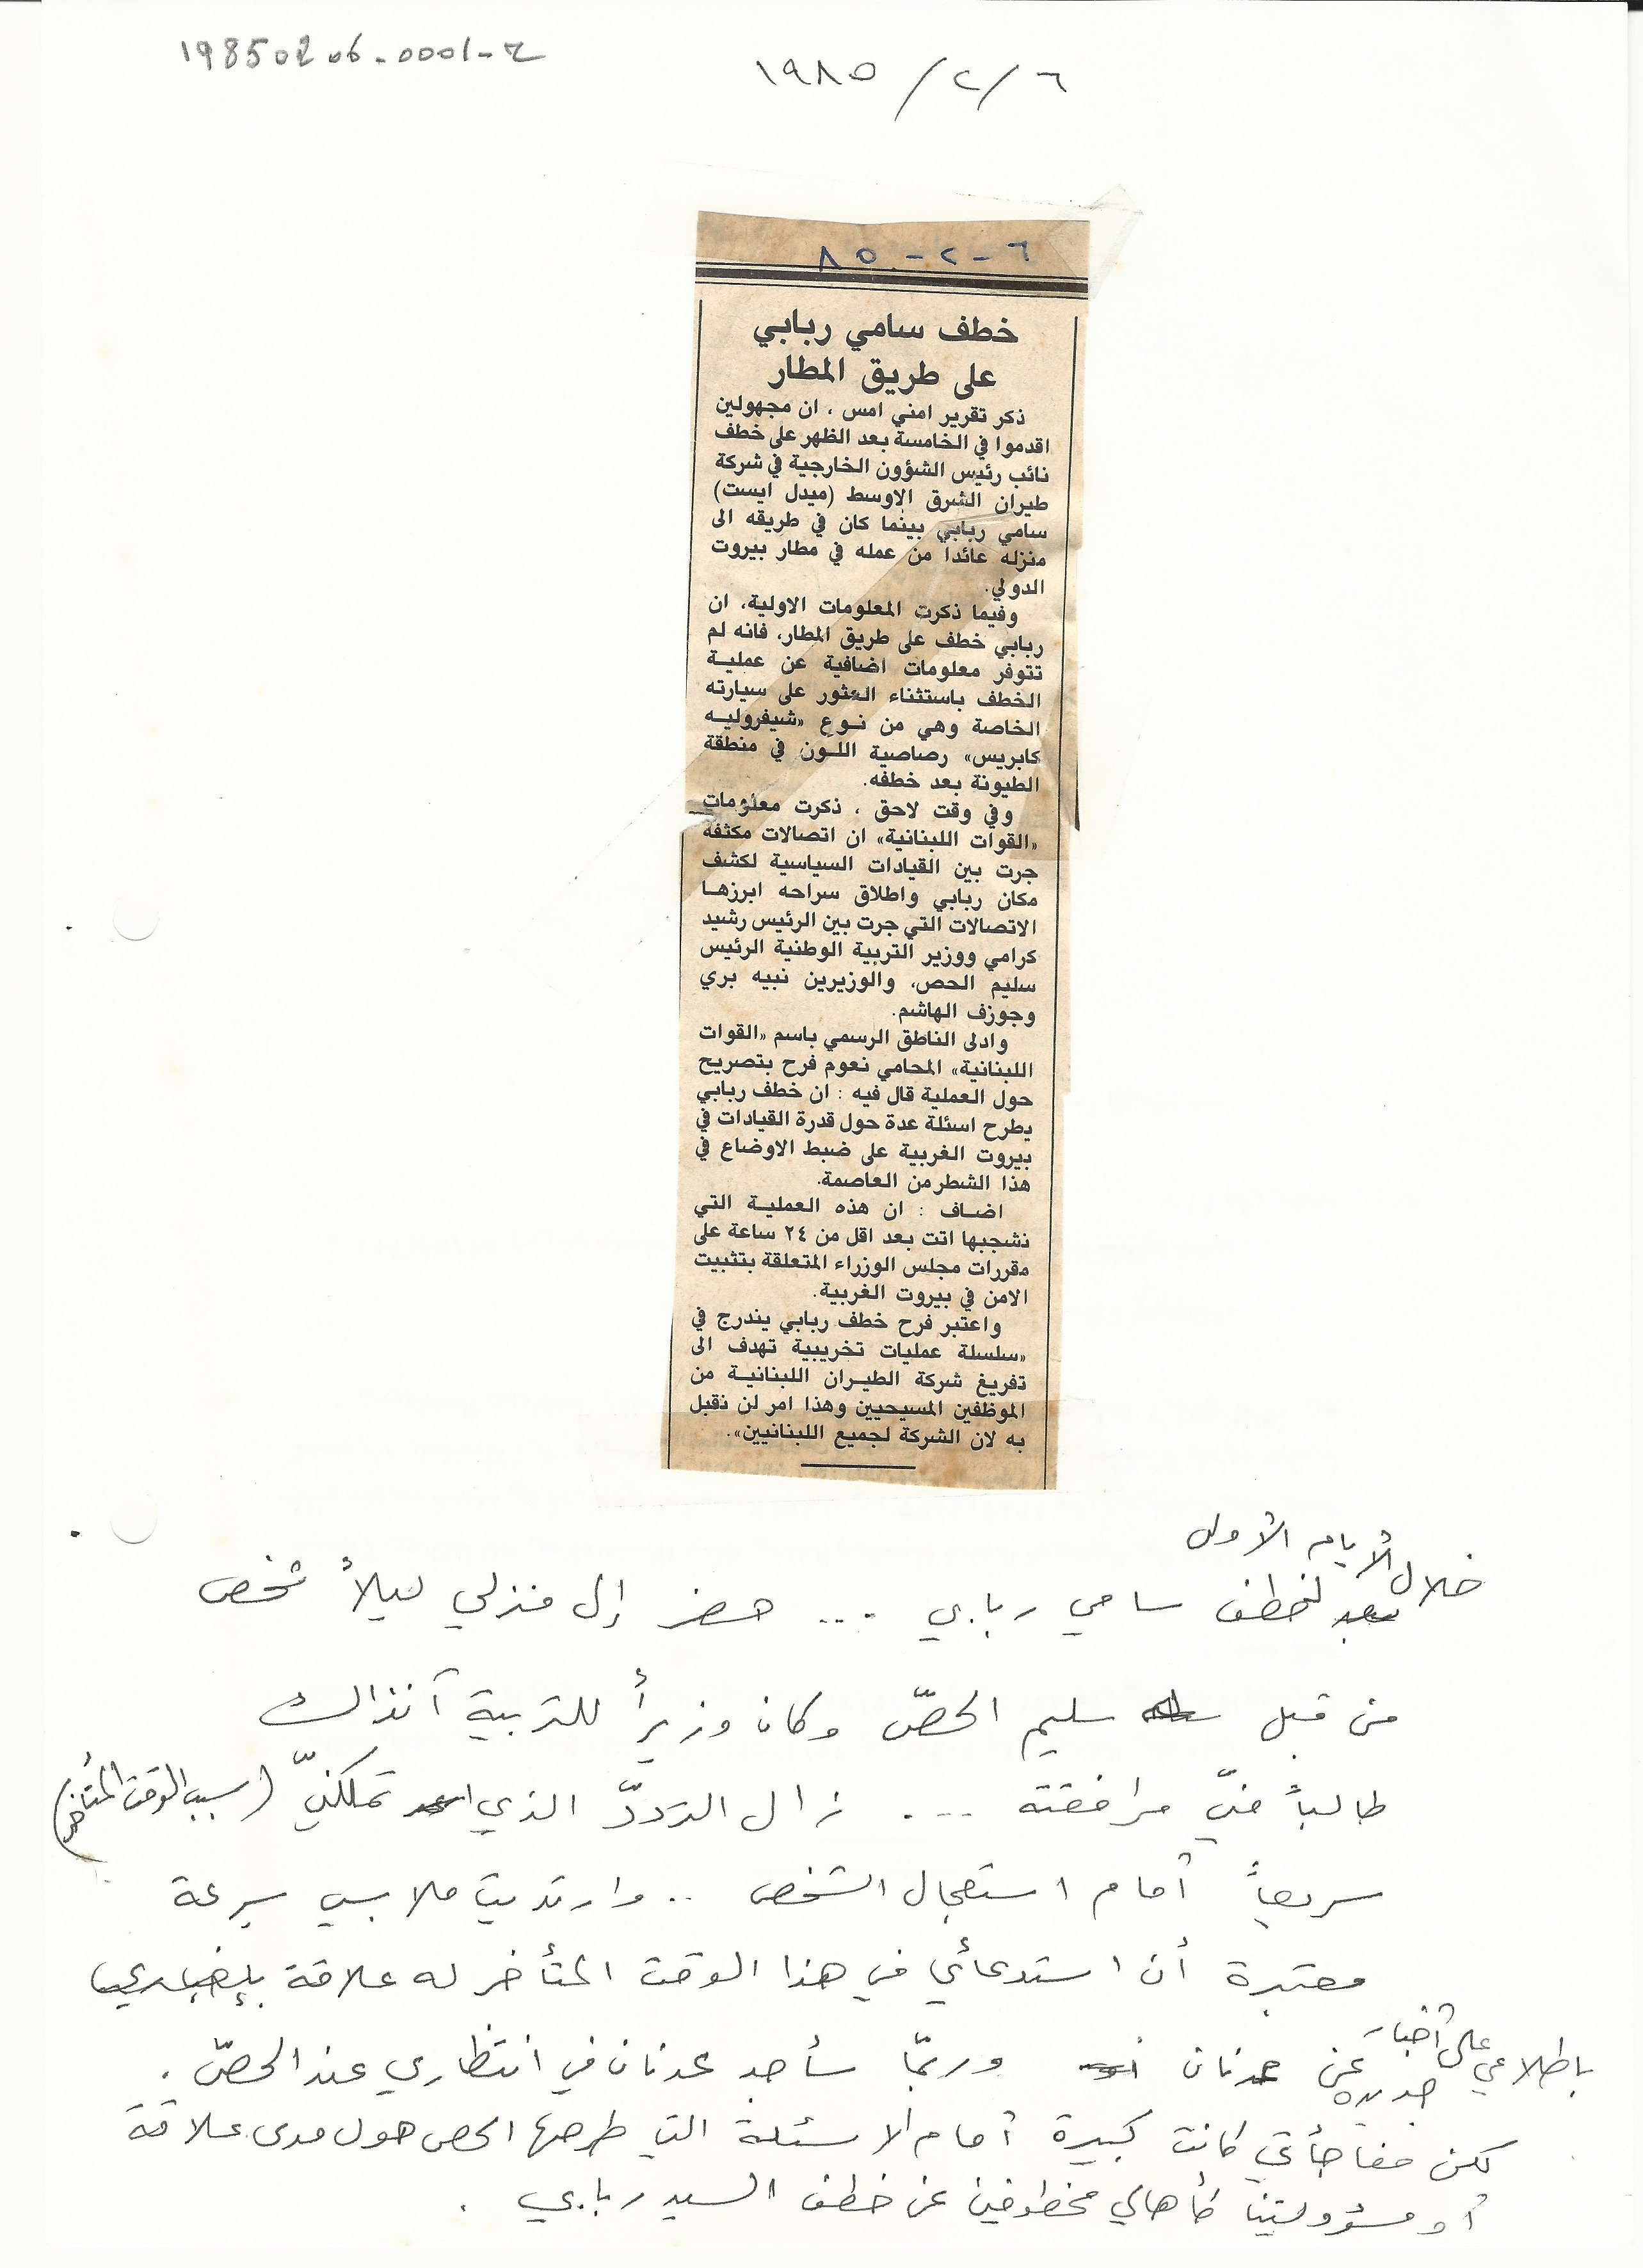 19850206-0001-ح
١٩٨٥/٢/٦
٦-٢-٨٥
خطف سامي ربابي
على طريق المطار
ذكر تقرير امني امس ، ان مجهولين
اقدموا في الخامسة بعد الظهر على خطف
نائب رئيس الشؤون الخارجية في شركة
طيران الشرق الاوسط (ميدل ايست)
سامي ربابي بينما كان في طريقه الى
منزله عائدا من عمله في مطار بيروت
الدولي.
وفيما ذكرت المعلومات الاولية، ان
ربابي خطف على طريق المطار، فانه لم
تتوفر معلومات اضافية عن عملية
الخطف باستثناء العثور على سيارته
الخاصة وهي من نوع «شيفروليه
كابريس» رصاصية اللون في منطقة
الطيونة بعد خطفه.
وفي وقت لاحق ، ذكرت معلومات
«القوات اللبنانية» ان اتصالات مكثفة
جرت بين القيادات السياسية لكشف
مكان ربابي واطلاق سراحه ابرزها
الاتصالات التي جرت بين الرئيس رشيد
كرامي ووزير التربية الوطنية الرئيس
سليم الحص، والوزيرين نبيه بري
وجوزف الهاشم.
وادلى الناطق الرسمي باسم «القوات
اللبنانية» المحامي نعوم فرح بتصريح
حول العملية قال فيه : ان خطف ربابي
يطرح اسئلة عدة حول قدرة القيادات في
بيروت الغربية على ضبط الاوضاع في
هذا الشطر من العاصمة.
اضاف : ان هذه العملية التي
نشجبها اتت بعد اقل من ٢٤ ساعة على
مقررات مجلس الوزراء المتعلقة بتثبيت
الامن في بيروت الغربية.
واعتبر فرح خطف ربابي يندرج في
«سلسلة عمليات تخريبية تهدف الى
تفريغ شركة الطيران اللبنانية من
الموظفين المسيحيين وهذا امر لن نقبل
به لان الشركة لجميع اللبنانيين».
خلال الأيام الأولى
بعد لخطف سامي ربابي ... حضر إلى منزلي ليلاً شخص
من قبل سليم الحصّ وكان وزيراً للتربية آنذاك
طالباً منّي مرافقته ... زال التردّد الذي تملكنيّ (سبب الوقت المتأخر)
سريعاً أمام استعجال الشخص .. وارتديت ملابسي بسرعة
معتبرة أن استدعائي في هذا الوقت المتأخر له علاقة بإخباري
باطلاعي على أخبار جديدة عن عدنان وربمّا سأجد عدنان في انتظاري عند الحصّ .
لكن مفاجأتي كانت كبيرة أمام الاسئلة التي طرحها الحص حول مدى علاقة
أو مسؤوليتنا كأهالي مخطوفين عن خطف السيد ربابي .